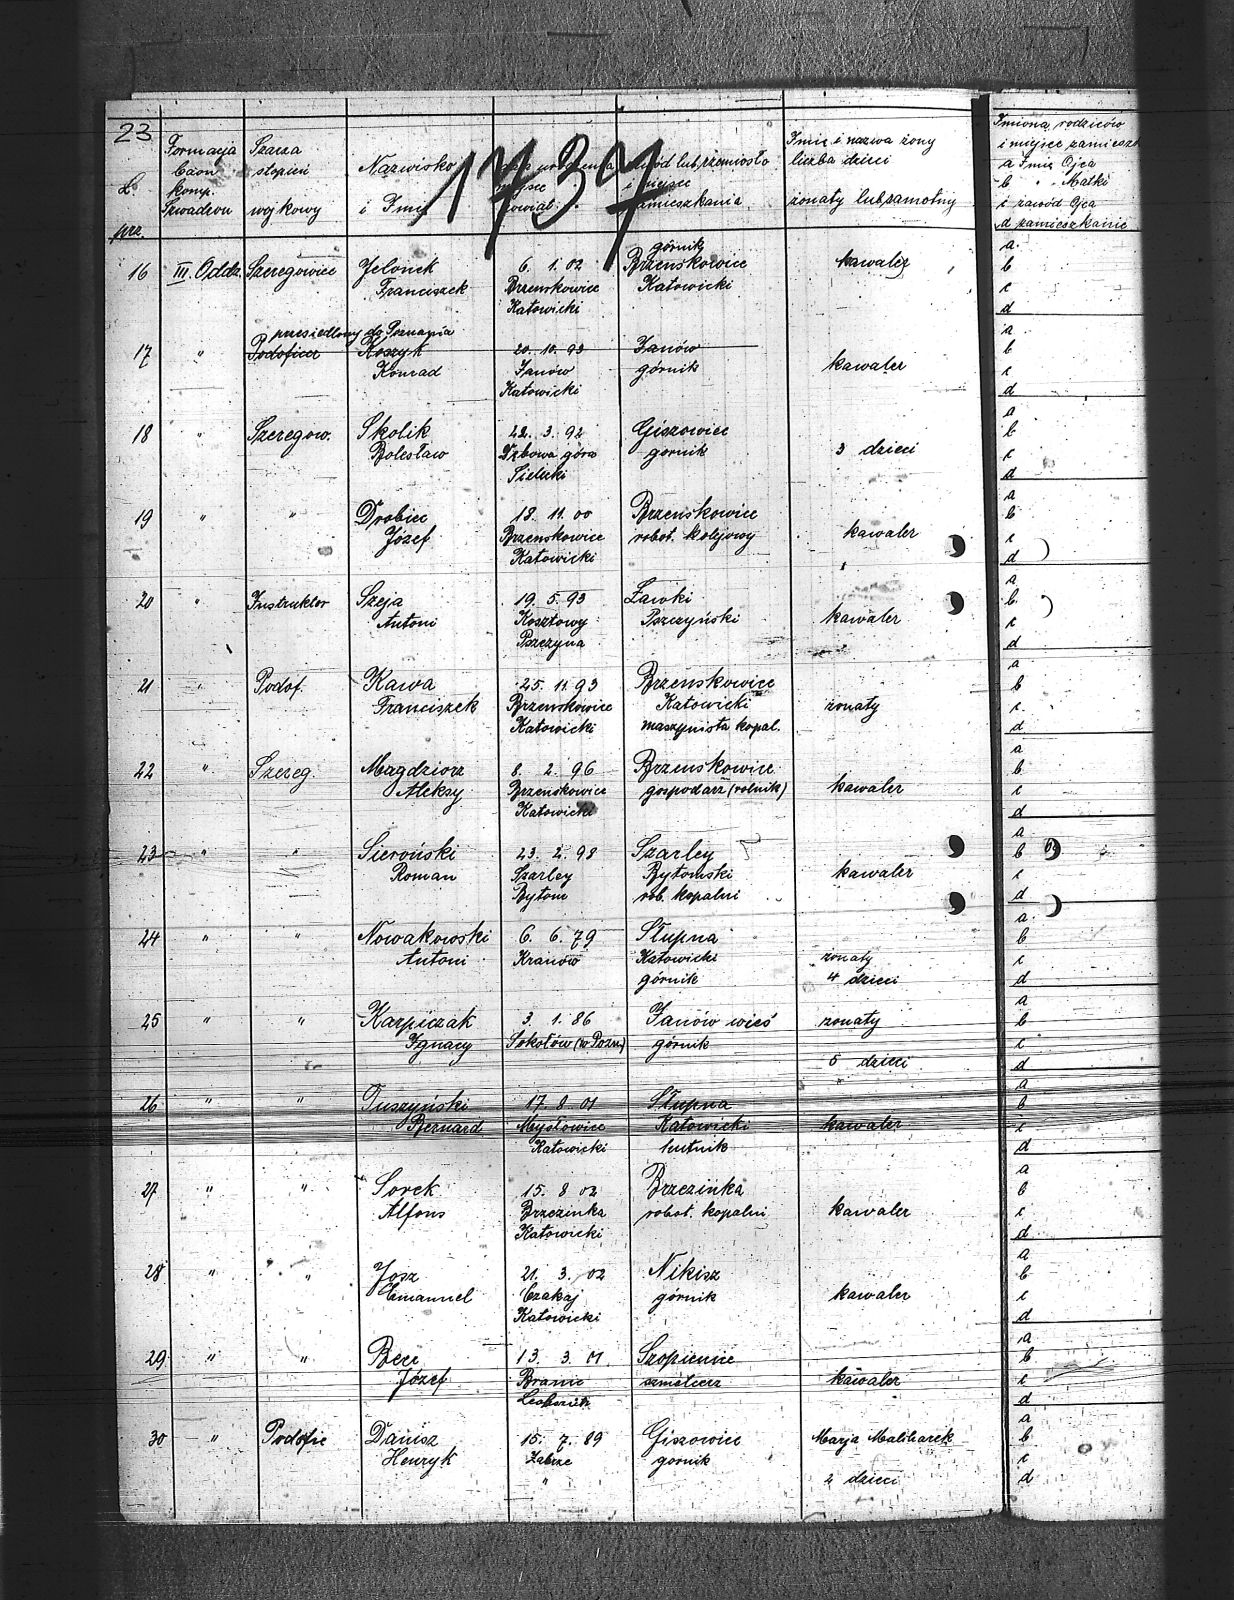 23
1737
Formacja Szarża Imię i nazwa żony Imiona rodziców
baon stopień Nazwisko zawód lub rzemiosło liczba dzieci i miejsce zamieszk
L. komp. i miejsce a Imię Ojca
b " Matki
Szwadron wojskowy i Imię powiat zamieszkania żonaty lub samotny c zawód Ojca
prz. d zamieszkanie
górnik a
16 III. Oddz. Szeregowiec Jelonek 6. 1. 02 Brzenskowice kawaler b
Franciszek Brzenskowice Katowicki c
Katowicki d
przesiedlony do Poznania a
17 " Podoficer Koszyk 20. 10. 93 Janów b
Konrad Janów górnik kawaler c
Katowicki d
a
18 " Szeregow. Skolik 22. 3. 92 Giszowiec b
Bolesław góra gornik 3 dzieci c
Sielecki d
a
19 " " Drobiec 18. 11. 00 Brzeńskowice b
Józef Brzenskowice robot. kolejowy kawaler c
Katowicki d
a
20 " Instruktor Szeja 19. 5. 93 Ławki b
Antoni Kosztowy Pszczyński kawaler c
Pszczyna d
a
21 " Podof. Kawa 25. 11. 93 Brzenskowice b
Franciszek Brzenskowice Katowicki żonaty c
Katowicki maszynista kopal. d
a
22 " Szereg. Magdziorz 8. 2. 96 Brzenskowice b
Aleksy Brzenskowice gospodarz (rolnik) kawaler c
Katowicki d
a
23 " " Sieroński 23. 2. 98 Szarley b
Roman Szarley Bytomski kawaler c
Bytom rob. kopalni d
a
24 " " Nowakowski 6. 6. 79 Słupna b
Antoni Kranów Katowicki żonaty c
górnik 4 dzieci d
a
25 " " Karpiczak 3. 1. 86 Janów wieś żonaty b
Ignacy Sokołów (w Pozn) górnik c
5 dzieci d
a
26 " " Tuszyński 17. 8 01 Słupna b
Bernard Mysłowice Katowicki kawaler c
Katowicki hutnik d
a
27 " " Sorek 15. 8 02 Brzezinka b
Alfons Brzezinka robot. kopalni kawaler c
Katowicki d
a
28 " " Josz 21. 3. 02 Nikisz b
Emanuel Czakaj górnik kawaler c
Katowicki d
a
29 " " Bere 13. 3. 01 Szopienice b
Józef Branic szmelcerz kawaler c
d
a
30 " Podofic Danisz 15. 7. 89 Giszowiec Marja Malcharek b
Henryk Zabrze gornik c
" 2 dzieci d